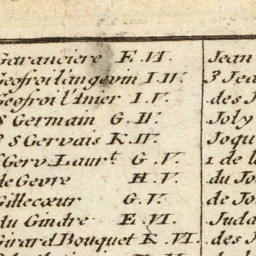 Garanciere E.VI.
Geofroi l'angevin I.IV.
Geofroi l'Anier I.V.
S Germain G.IV.
S Gervais K.IV.
Gerv. Laurt. G.V.
de Gevre H.V.
Gillecœur G.V.
du Gindre E.VI.
Girard Bouquet K.VI.
Jean
3 Jea
des J
Joly
Joqu
1 de l
du Jo
de Jo
Juda
des J